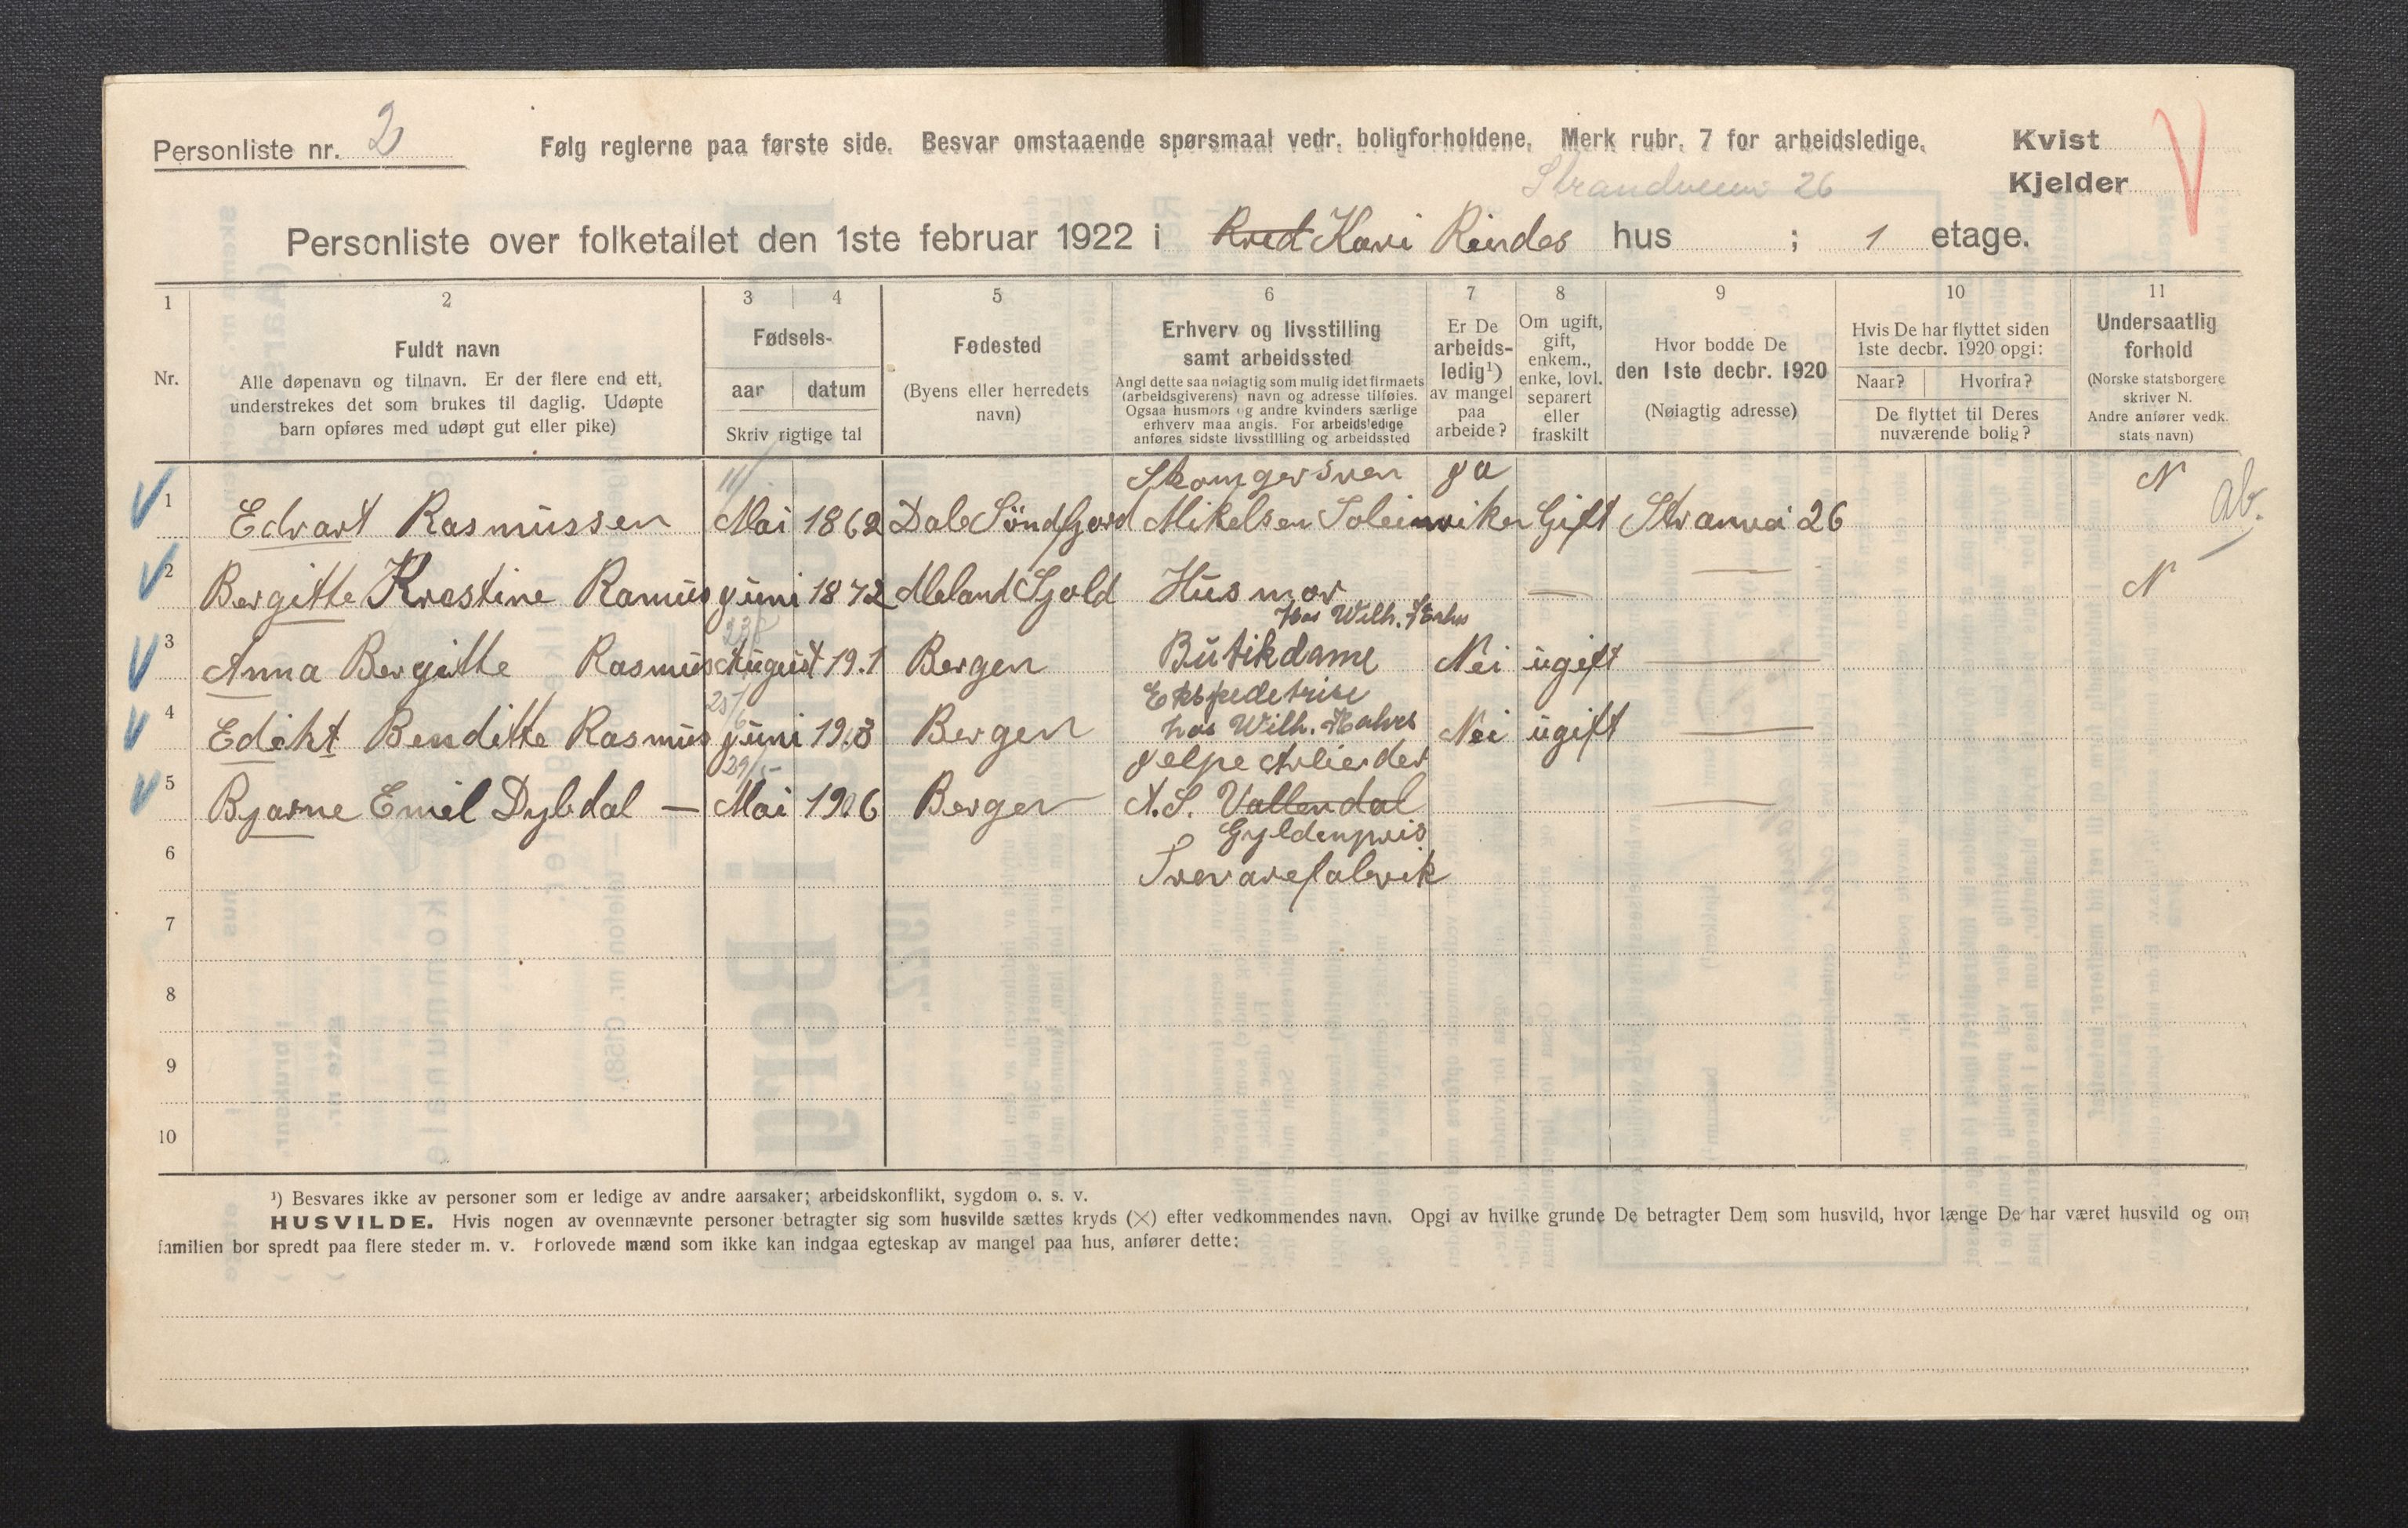 Personliste nr. 2
Følg reglerne paa første side. Besvar omstaaende spørsmaal vedr. boligforholdene. Merk rubr. 7 for arbeidsledige.
Kvist
Kjelder
Strandveien 26
Personliste over folketallet den 1ste februar 1922 i Kari Rindes hus ; 1 etage.
1 2 3 4 5 6 7 8 9 10 11
Nr.
Fuldt navn
Alle døpenavn og tilnavn. Er der flere end ett,
understrekes det som brukes til daglig. Udøpte
barn opføres med udøpt gut eller pike)
Fødsels-
aar datum
Skriv rigtige tal
Fødested
(Byens eller herredets
navn)
Erhverv og livsstilling
samt arbeidssted
Angi dette saa nøiagtig som mulig idet firmaets
(arbeidsgiverens) navn og adresse tilføies.
Ogsaa husmors og andre kvinders særlige
erhverv maa angis. For arbeidsledige
anføres sidste livsstilling og arbeidssted
Er De
arbeids-
ledig¹)
av mangel
paa
arbeide?
Om ugift,
gift,
enkem.,
enke, lovl.
separert
eller
fraskilt
Hvor bodde De
den 1ste decbr. 1920
(Nøiagtig adresse)
Hvis De har flyttet siden
1ste decbr. 1920 opgi:
Naar? Hvorfra?
De flyttet til Deres
nuværende bolig?
Undersaatlig
forhold
(Norske statsborgere
skriver N.
Andre anfører vedk.
stats navn)
11/ Skomgersven ja N
1 Edvart Rasmussen Mai 1862 Dale Söndfjord Mikelsen Soleimviken Gift Stranvei 26 ab.
2 Bergitte Krestine Ramus juni 1872 Meland Hus mor — — N
Hos Wilh.
3 Anna Bergitte Rasmus August 19.1 Bergen Butikdame Nei ugift —
25/6 Ekspedetrise
4 Edikt Benditte Rasmus juni 1903 Bergen hos Wilh. Nei ugift —
29/5 jelpe Arbeider
5 Bjarne Emil Dybdal — Mai 1906 Bergen A.S. Vallendal —
Gyldenpris
6 Trevarefabrik
7
8
9
10
¹) Besvares ikke av personer som er ledige av andre aarsaker; arbeidskonflikt, sygdom o. s. v.
HUSVILDE. Hvis nogen av ovennævnte personer betragter sig som husvilde sættes kryds (×) efter vedkommendes navn. Opgi av hvilke grunde De betragter Dem som husvild, hvor længe De har været husvild og om
familien bor spredt paa flere steder m. v. Forlovede mænd som ikke kan indgaa egteskap av mangel paa hus, anfører dette: